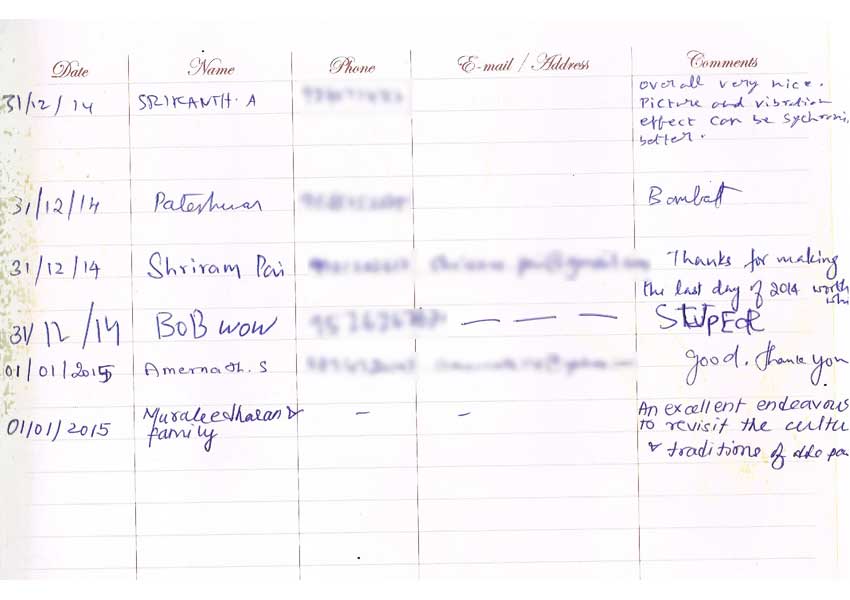 Date Name Phone E-mail / Address Comments
31/12/14 SRIKANTH. A overall very nice.
Picture and vibration
effect can be sychroni
better.
31/12/14 Pateshwar Bombatt
31/12/14 Shriram Pai Thanks for making
the last day of 2014 worth
31/12/14 BOB WOW — — — STUPEOR
01/01/2015 Amernath. S good. thank you
01/01/2015 Muraleedharan & – – An excellent endeavour
family to revisit the cultu
& traditions of the pa